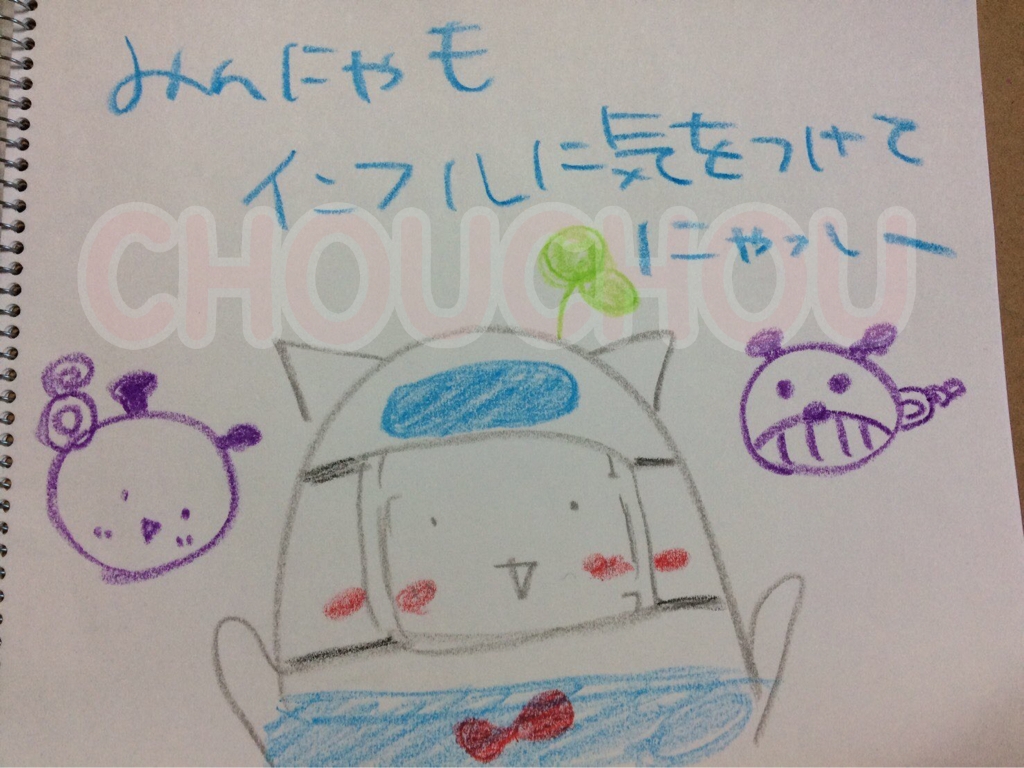 みんにゃも
インフルに気をつけて
にゃっしー
CHOUCHOU